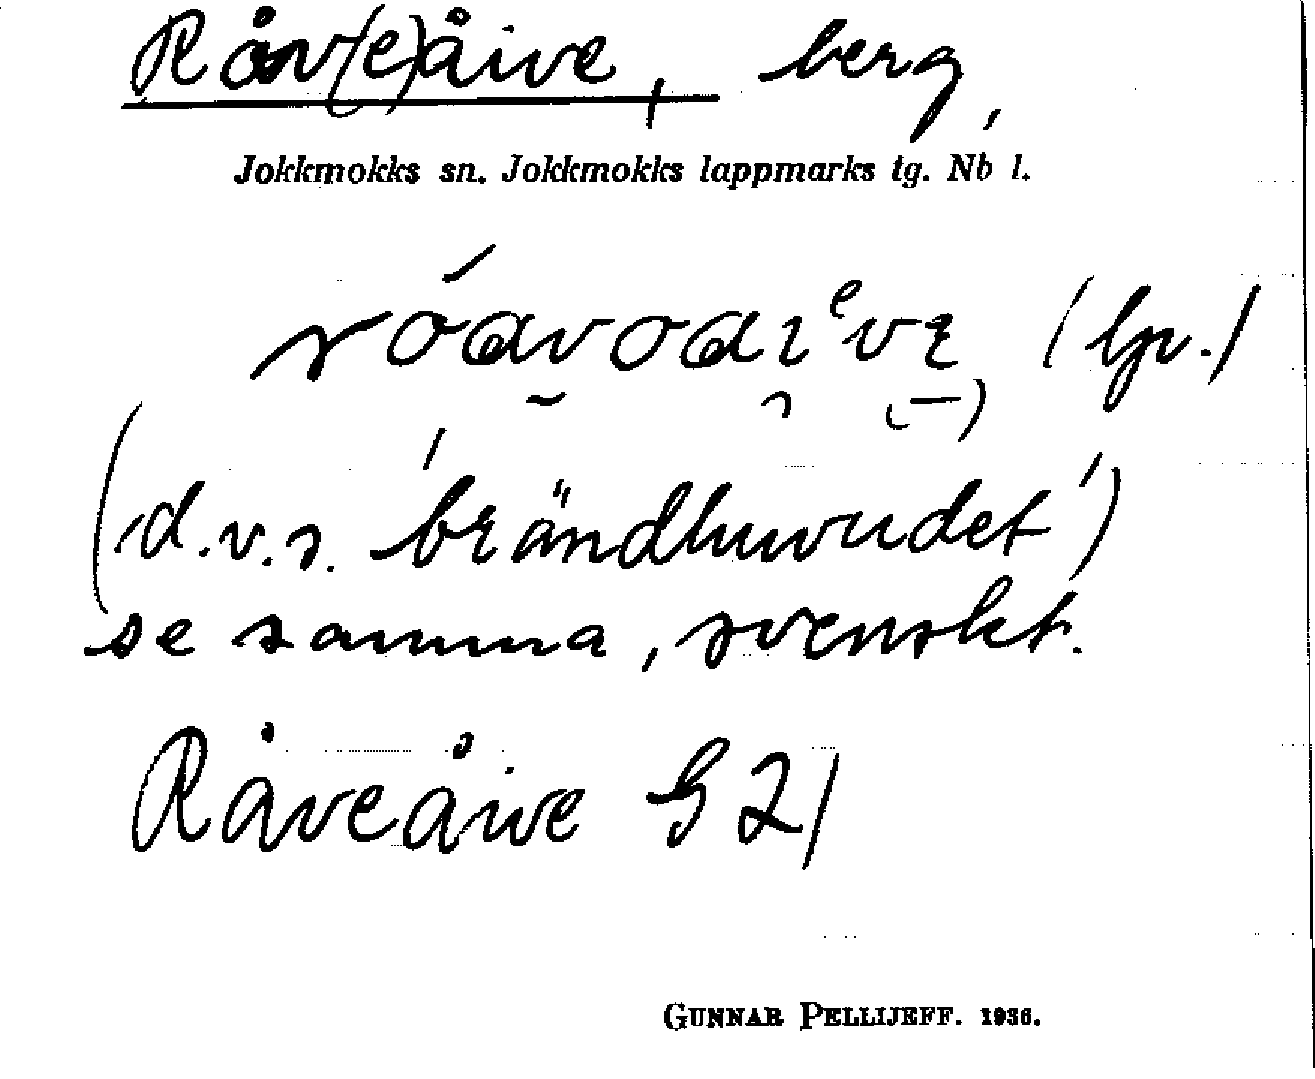 Råv(e)åive, berg,
Jokkmokks sn. Jokkmokks lappmarks tg. Nb l.
(lpr.)
(d.v.s. 'brändhuvudet')
se samma, svenskt.
Råveåive G 21
GUNNAR PELLIJEFF. 1936.